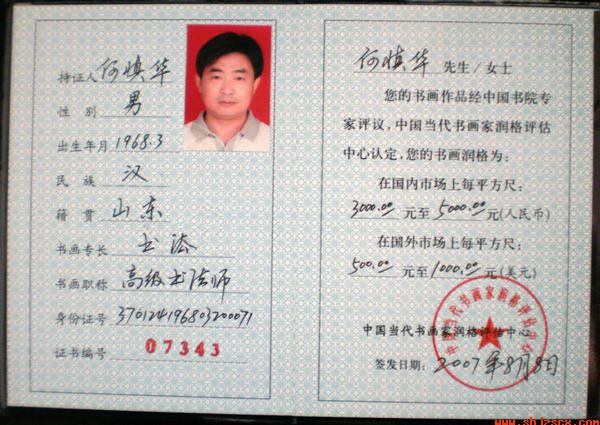 持证人 何慎华
性 别 男
出生年月 1968.3
民 族 汉
籍 贯 山东
书画专长 书法
书画职称 高级书法师
身份证号 370124196803200071
证书编号 07343
何慎华 先生/女士
您的书画作品经中国书院专
家评议,中国当代书画家润格评估
中心认定,您的书画润格为:
在国内市场上每平方尺:
3000.00 元至 5000.00 元(人民币)
在国外市场上每平方尺:
500.00 元至 1000.00 元(美元)
中国当代书画家润格评估中心
中国当代书画家润格评估中心
签发日期: 2007年8月8日
www.shjzscx.com